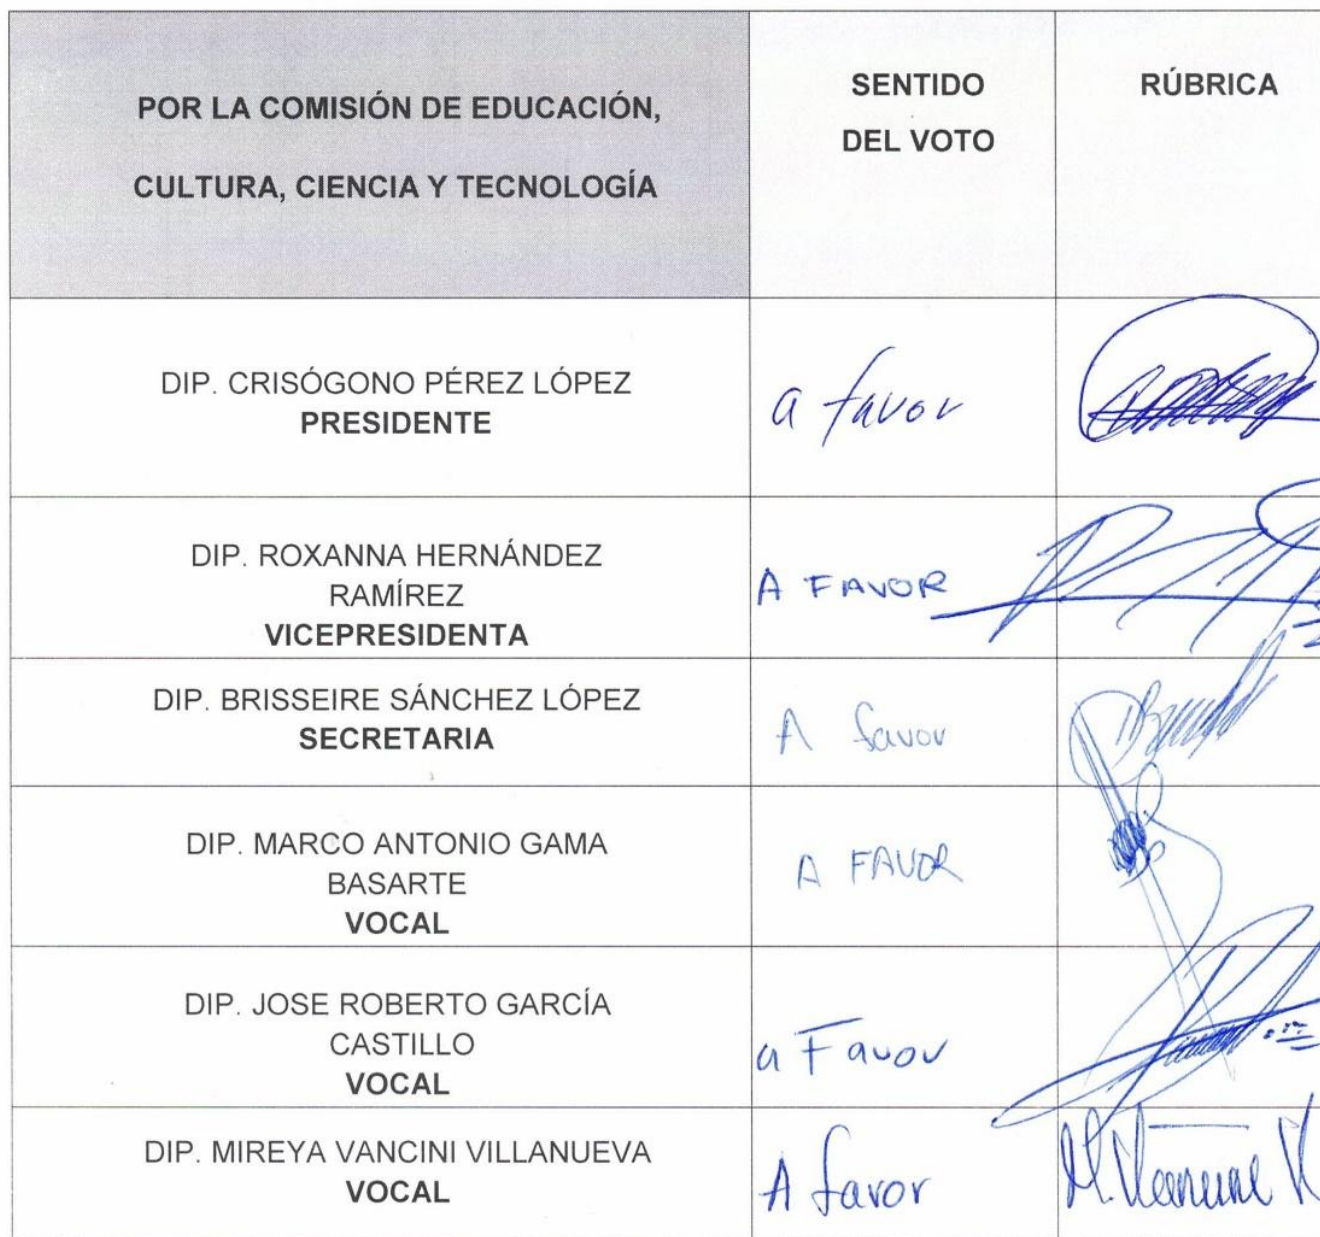 POR LA COMISIÓN DE EDUCACIÓN,
CULTURA, CIENCIA Y TECNOLOGÍA
SENTIDO
DEL VOTO
RÚBRICA
DIP. CRISÓGONO PÉREZ LÓPEZ
PRESIDENTE
a favor
DIP. ROXANNA HERNÁNDEZ
RAMÍREZ
VICEPRESIDENTA
A FAVOR
DIP. BRISSEIRE SÁNCHEZ LÓPEZ
SECRETARIA
A favor
DIP. MARCO ANTONIO GAMA
BASARTE
VOCAL
A FAVOR
DIP. JOSE ROBERTO GARCÍA
CASTILLO
VOCAL
a Favor
DIP. MIREYA VANCINI VILLANUEVA
VOCAL
A favor